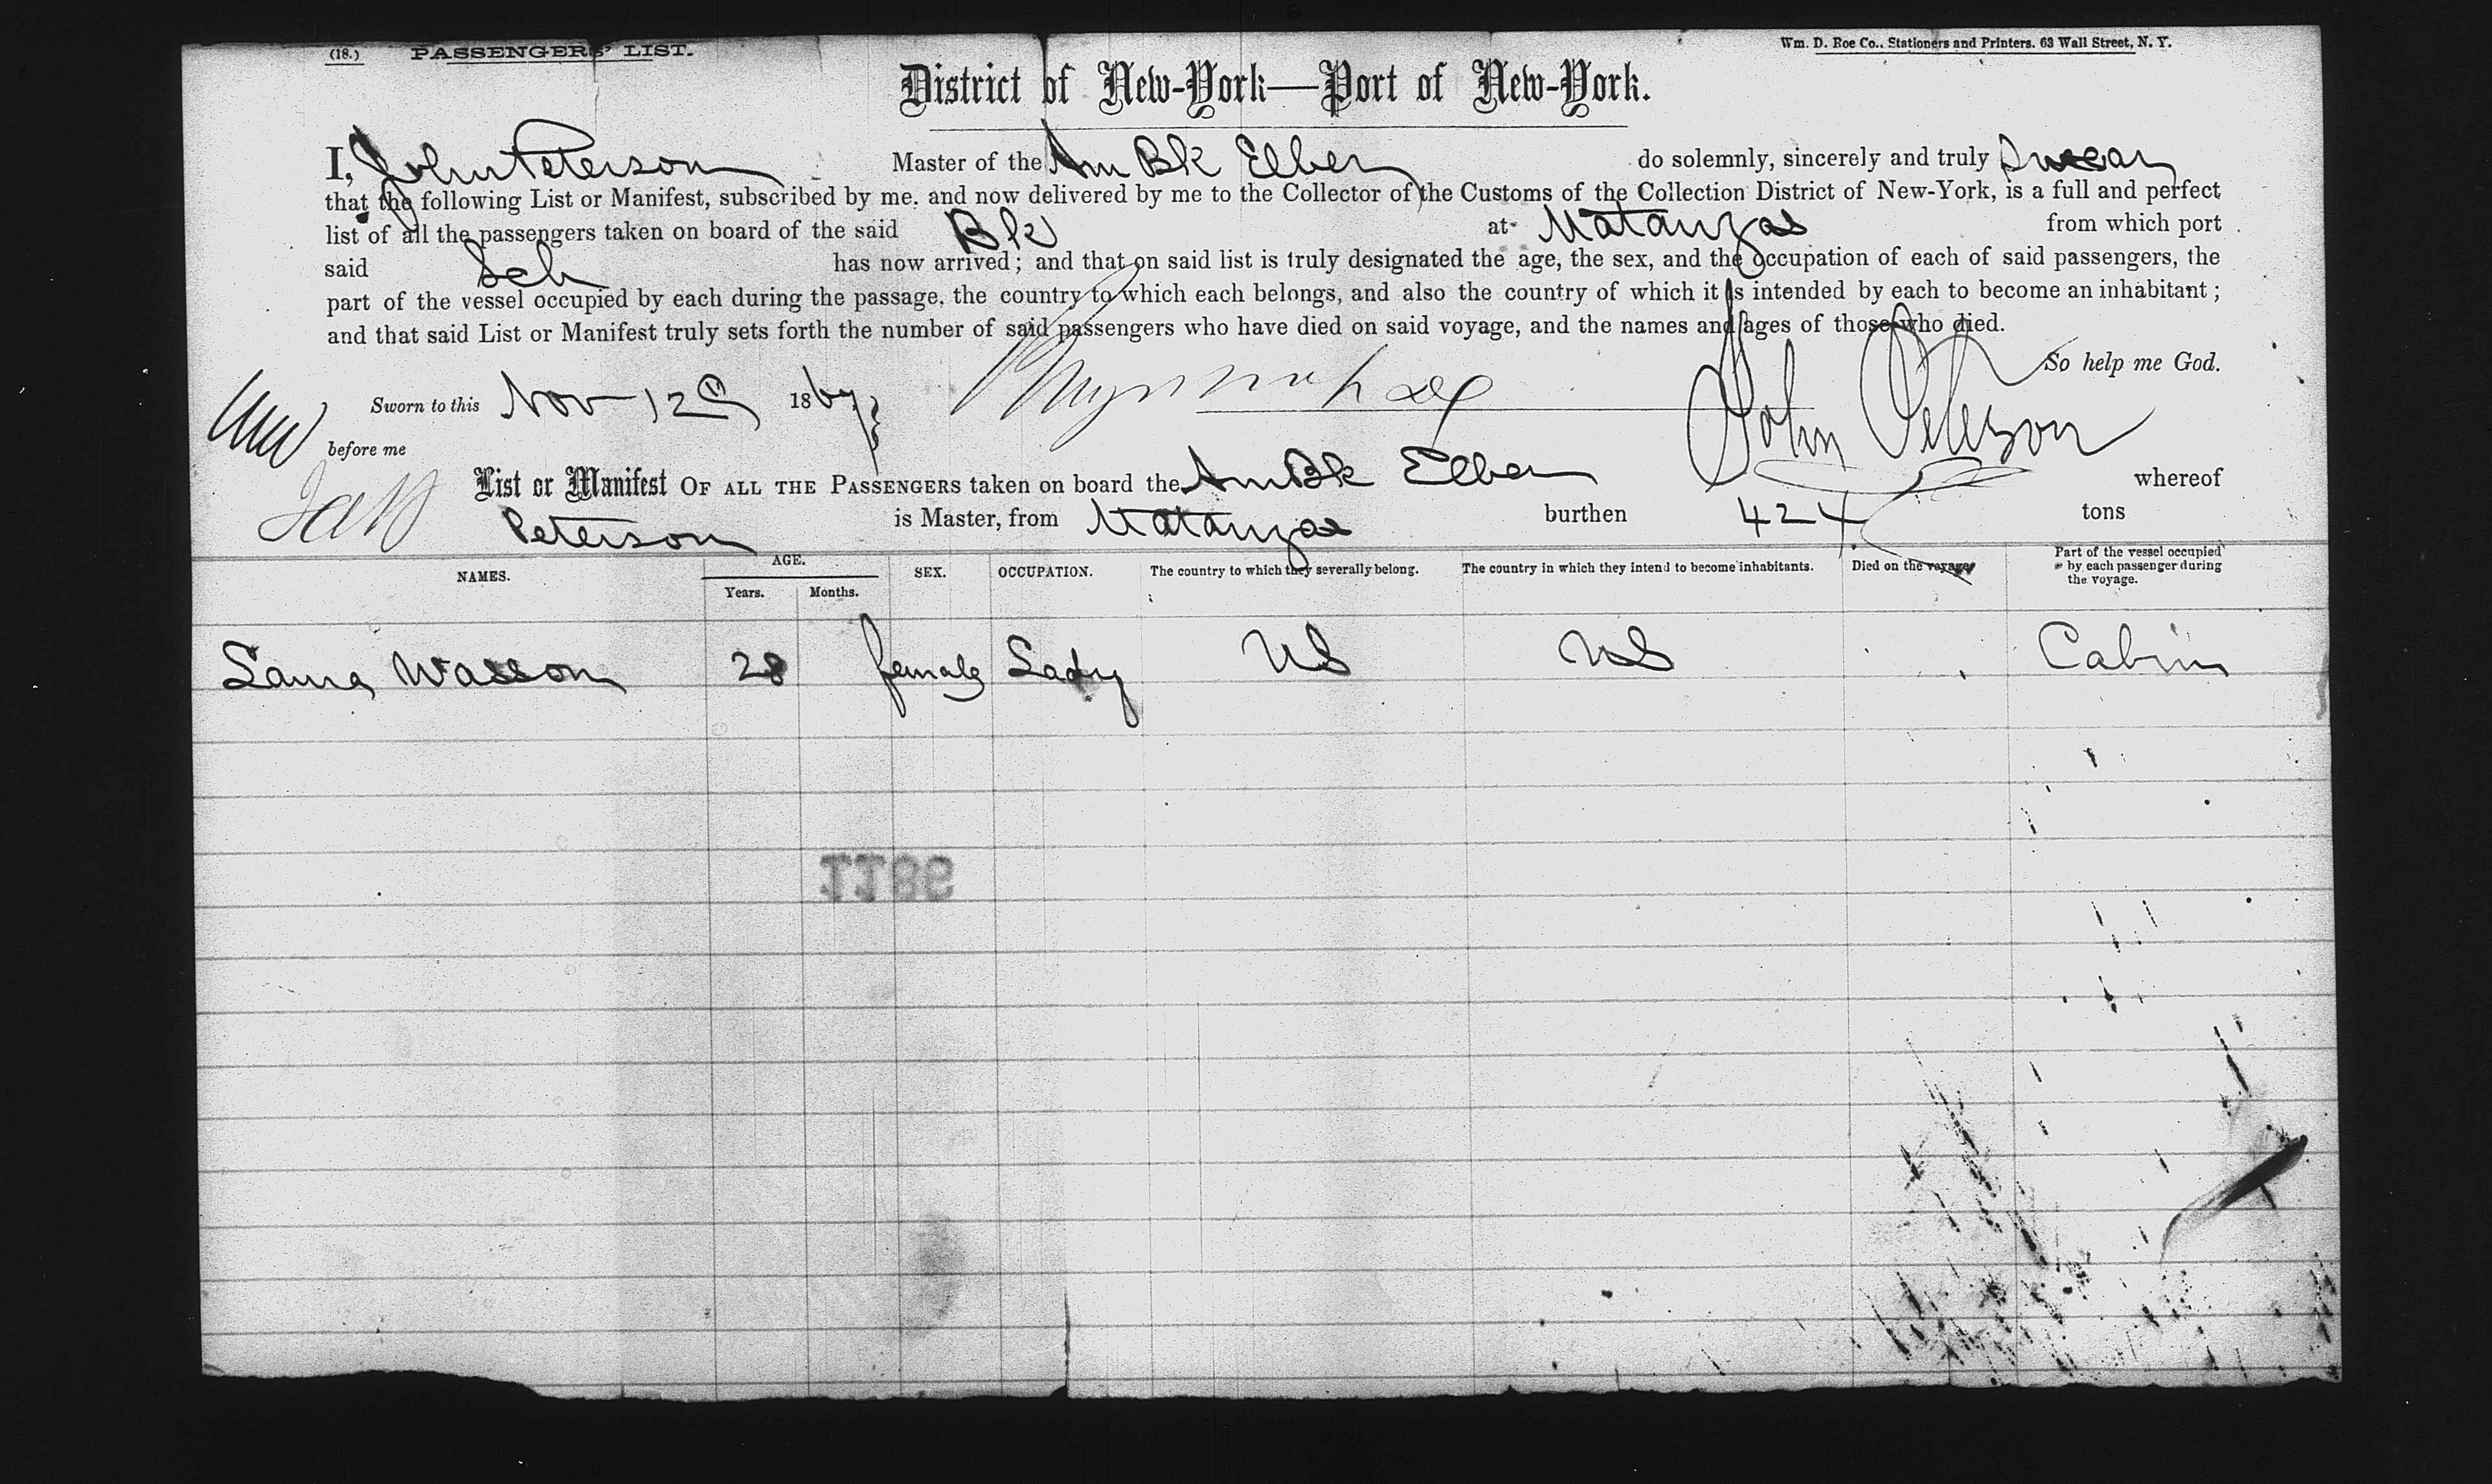 (18.) PASSENGERS' LIST. Wm. D. Roe Co., Stationers and Printers. 63 Wall Street, N. Y.
District of New-York—Port of New-York.
I, John Peterson Master of the Am Bk Elben do solemnly, sincerely and truly swear
that the following List or Manifest, subscribed by me, and now delivered by me to the Collector of the Customs of the Collection District of New-York, is a full and perfect
list of all the passengers taken on board of the said Bk at Matanzas from which port
said Sch has now arrived; and that on said list is truly designated the age, the sex, and the occupation of each of said passengers, the
part of the vessel occupied by each during the passage, the country to which each belongs, and also the country of which it is intended by each to become an inhabitant;
and that said List or Manifest truly sets forth the number of said passengers who have died on said voyage, and the names and ages of those who died.
So help me God.
Sworn to this Nov 12 1867
John Peterson
before me
List or Manifest OF ALL THE PASSENGERS taken on board the Am Bk Elben whereof
Peterson is Master, from Matanzas burthen 424 tons
NAMES. AGE. Years. Months. SEX. OCCUPATION. The country to which they severally belong. The country in which they intend to become inhabitants. Died on the voyage. Part of the vessel occupied by each passenger during the voyage.
Laura Wasson 28 female Lady US US Cabin
1186